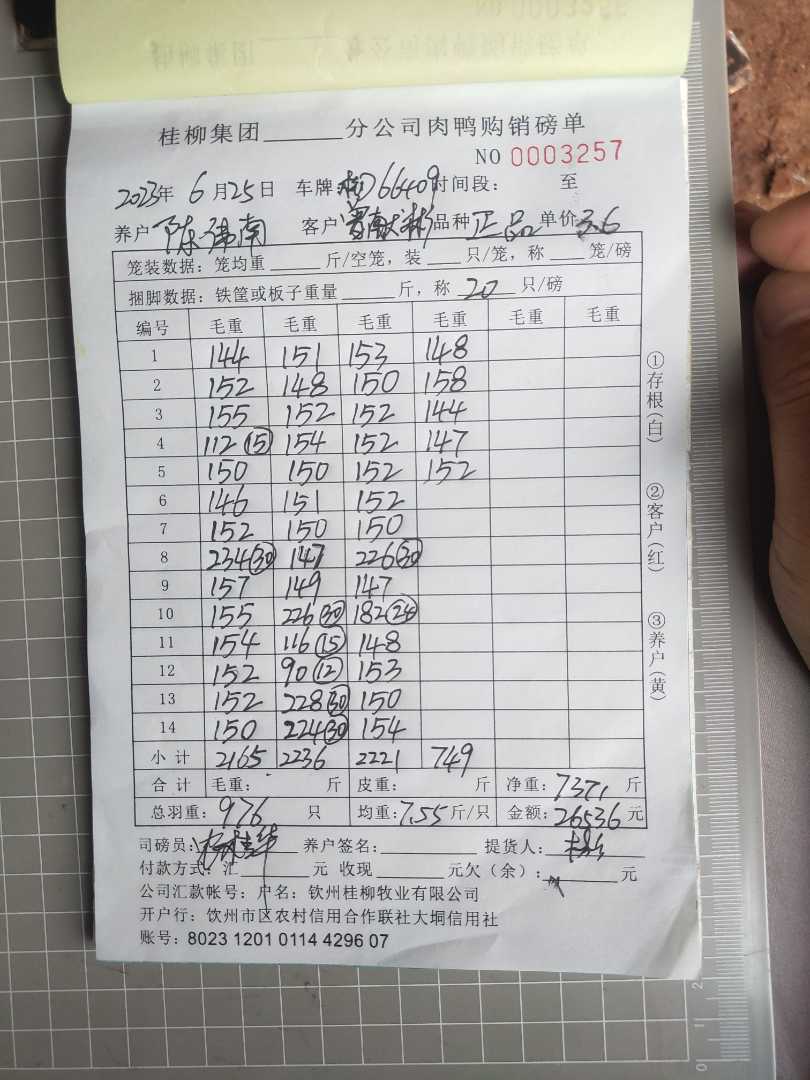 桂柳集团______分公司肉鸭购销磅单
NO 0003257
2023年 6月25日 车牌 66409 时间段: 至
养户 陈 南 客户 品种 正品 单价 3.6
笼装数据:笼均重______斤/空笼,装___只/笼,称___笼/磅
捆脚数据:铁筐或板子重量_____斤,称 20 只/磅
编号 毛重 毛重 毛重 毛重 毛重 毛重
1 144 151 153 148
2 152 148 150 158
3 155 152 152 144
4 112 (15) 154 152 147
5 150 150 152 152
6 146 151 152
7 152 150 150
8 234 (30) 147 226 (30)
9 157 149 147
10 155 226 (30) 182 (24)
11 154 116 (15) 148
12 152 90 (12) 153
13 152 228 (30) 150
14 150 224 (30) 154
小计 2165 2236 2221 749
合计 毛重: 斤 皮重: 斤 净重: 7371 斤
总羽重: 976 只 均重: 7.55 斤/只 金额: 26536 元
司磅员: 养户签名: 提货人:
付款方式:汇______元 收现______元欠(余):______元
公司汇款帐号:户名:钦州桂柳牧业有限公司
开户行:钦州市区农村信用合作联社大垌信用社
账号:8023 1201 0114 4296 07
①存根(白)
②客户(红)
③养户(黄)